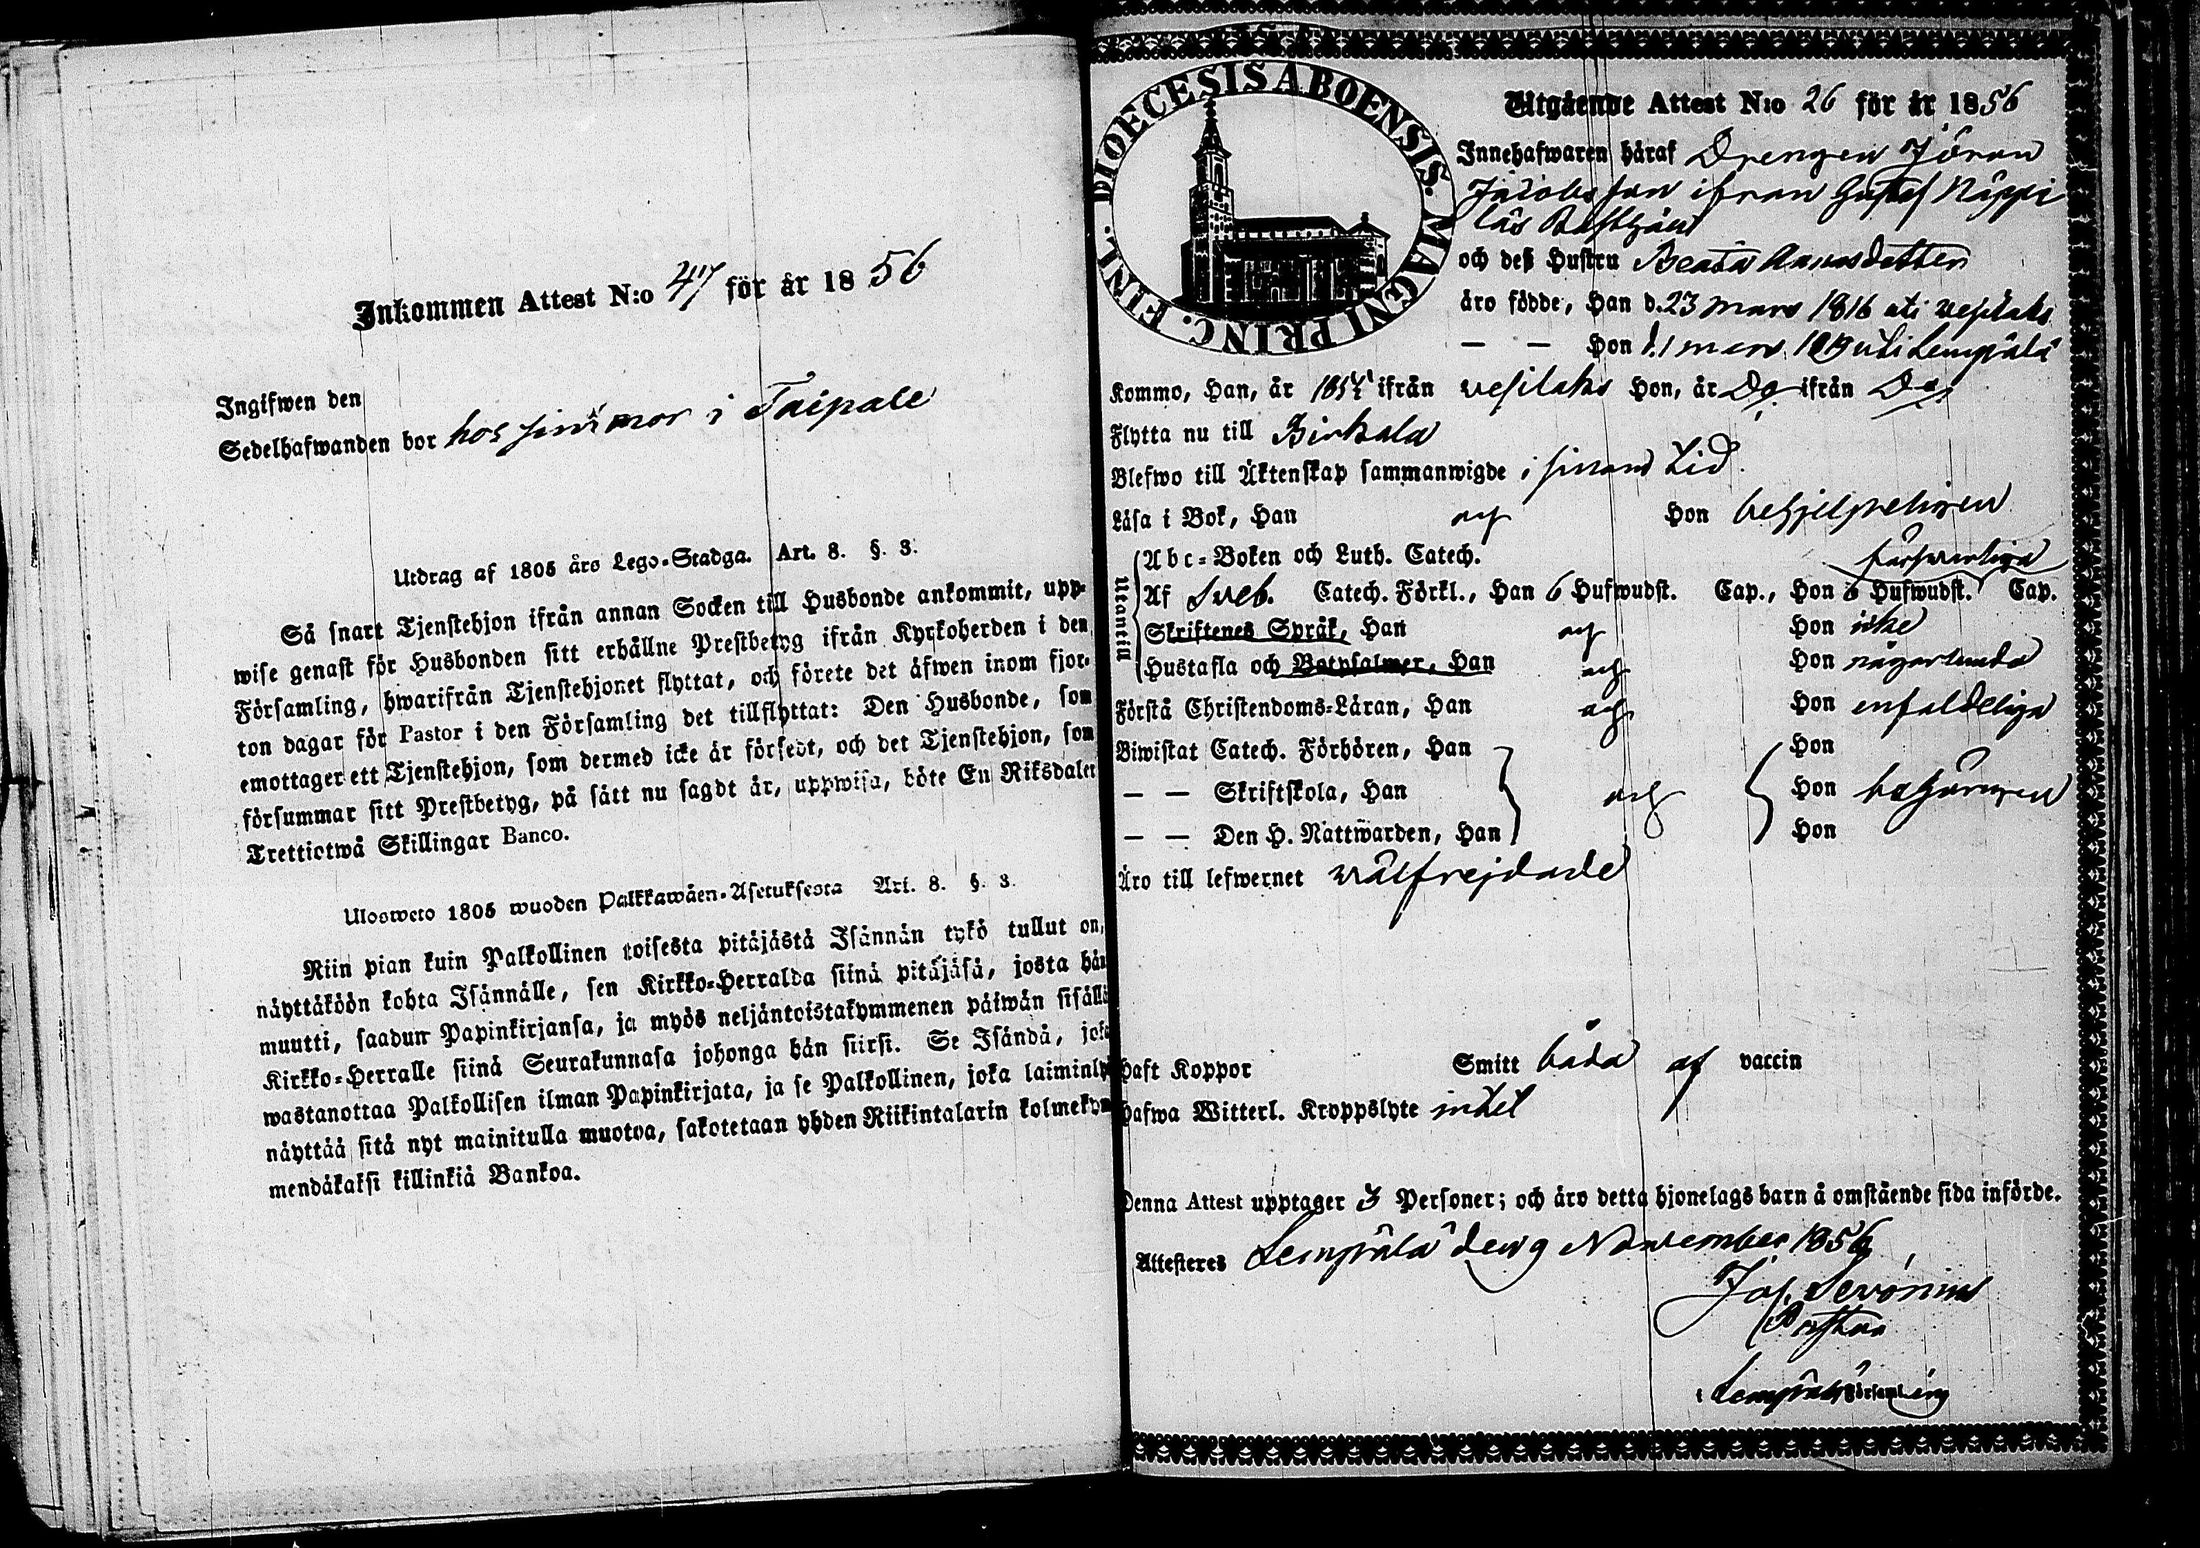 Inkommen Attest N:o 47 för år 1856
Ingifwen den
Sedelhafwanden bor hos sin mor i Taipale
Utdrag af 1805 års Lego-Stadga. Art. 8. §. 3.
Så snart Tjenstehjon ifrån annan Socken till Husbonde ankommit, upp-
wise genast för Husbonden sitt erhållne Prestbetyg ifrån Kyrkoherden i den
Församling, hwarifrån Tjenstehjonet flyttat, och förete det äfwen inom fjor-
ton dagar för Pastor i den Församling det tillflyttat: Den Husbonde, som
emottager ett Tjenstehjon, som dermed icke är försedt, och det Tjenstehjon, som
försummar sitt Prestbetyg, på sätt nu sagdt är, uppwisa, böte En Riksdaler
Trettiotwå Skillingar Banco.
Ulosweto 1805 wuoden Palkkawäen-Asetuksesta Art. 8. §. 3.
Niin pian kuin Palkollinen toisesta pitäjästä Isännän tykö tullut on,
näyttäköön kohta Isännälle, sen Kirkko-Herralda siinä pitäjäsä, josta hän
muutti, saadun Papinkirjansa, ja myös neljäntoistakymmenen päiwän sisällä
Kirkko-Herralle siinä Seurakunnasa johonga hän siirsi. Se Isändä, joka
wastanottaa Palkollisen ilman Papinkirjata, ja se Palkollinen, joka laiminly
näyttää sitä nyt mainitulla muotoa, sakotetaan yhden Riikintalarin kolmekym
mendäkaksi killinkiä Bankoa.
DIOECESIS ABOENSIS. MAGNI PRINC. FINL.
Utgående Attest N:o 26 för år 1856
Innehafwaren häraf Drengen Jöran
Jacobsson ifrån Gustaf Näppi
läs
och deß Hustru Beata Annasdotter
äro födde, Han d. 23 mars 1816 uti Vesilaks
— — Hon d. 1 mars uti Lempälä
Kommo, Han, år 1854 ifrån Vesilaks Hon, år Do ifrån Do
Flytta nu till Birkala
Blefwo till Äktenskap sammanwigde i sinom tid.
Läsa i Bok, Han och Hon behjelpeligen
Utanetill
Abc-Boken och Luth. Catech. försvarliga
Af Sveb. Catech. Förkl., Han 6 Hufwudst. Cap., Hon 6 Hufwudst. Cap.
Skriftenes Språk, Han och Hon icke
Hustafla och Botpsalmer, Han och Hon någorlunda
Förstå Christendoms-Läran, Han och Hon enfaldeliga
Biwistat Catech. Förhören, Han Hon
— — Skriftskola, Han och Hon behörigen
— — Den H. Nattwarden, Han Hon
Äro till lefwernet välfrejdade
Haft Koppor Smitt båda af vaccin
Hafwa Witterl. Kroppslyte intet
Denna Attest upptager 3 Personer; och äro detta hjonelags barn å omstående sida införde.
Attesteres Lempälä den 9 November 1856
Jos. Servónius
Pastor
i Lempälä Församling